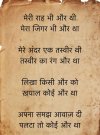 मेरी राह भी और थी
मेरा जिगर भी और था
मेरे अंदर एक तस्वीर थी
तस्वीर का रंग और था
लिखा किसी और को
ख़याल कोई और था
अपना समझ आवाज़ दी
पलटा तो कोई और था